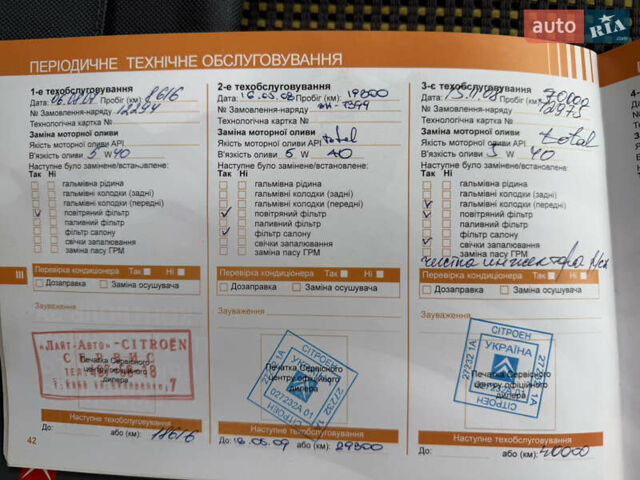 auto RIA.com
ПЕРІОДИЧНЕ ТЕХНІЧНЕ ОБСЛУГОВУВАННЯ
1-е техобслуговування
Дата: Пробіг (км): 8616
№ Замовлення-наряду
Технологічна картка №
Заміна моторної оливи
Якість моторної оливи API
В'язкість оливи 5 W 40
Наступне було замінене/встановлене:
Так Ні
гальмівна рідина
гальмівні колодки (задні)
гальмівні колодки (передні)
повітряний фільтр
паливний фільтр
фільтр салону
свічки запалювання
заміна пасу ГРМ
Перевірка кондиціонера Так Ні
Дозаправка Заміна осушувача
Зауваження
«Лайт-Авто»-CITROËN
СЕРВИС
Печатка Сервісного
центру офіційного
дилера
Наступне техобслуговування
До: або (км): 18616
42
2-е техобслуговування
Дата: 16.05.08 Пробіг (км):
№ Замовлення-наряду
Технологічна картка №
Заміна моторної оливи
Якість моторної оливи API total
В'язкість оливи 5 W 40
Наступне було замінене/встановлене:
Так Ні
гальмівна рідина
гальмівні колодки (задні)
гальмівні колодки (передні)
повітряний фільтр
паливний фільтр
фільтр салону
свічки запалювання
заміна пасу ГРМ
Перевірка кондиціонера Так Ні
Дозаправка Заміна осушувача
Зауваження
СІТРОЕН
УКРАЇНА
Печатка Сервісного
центру офіційного
дилера
Наступне техобслуговування
До: або (км): 29300
3-є техобслуговування
Дата: Пробіг (км):
№ Замовлення-наряду
Технологічна картка №
Заміна моторної оливи
Якість моторної оливи API total
В'язкість оливи 5 W 40
Наступне було замінене/встановлене:
Так Ні
гальмівна рідина
гальмівні колодки (задні)
гальмівні колодки (передні)
повітряний фільтр
паливний фільтр
фільтр салону
свічки запалювання
заміна пасу ГРМ
чистка
Перевірка кондиціонера Так Ні
Дозаправка Заміна осушувача
Зауваження
СІТРОЕН
УКРАЇНА
Печатка Сервісного
центру офіційного
дилера
Наступне техобслуговування
До: або (км): 40000
4-
Да
№
Те
За